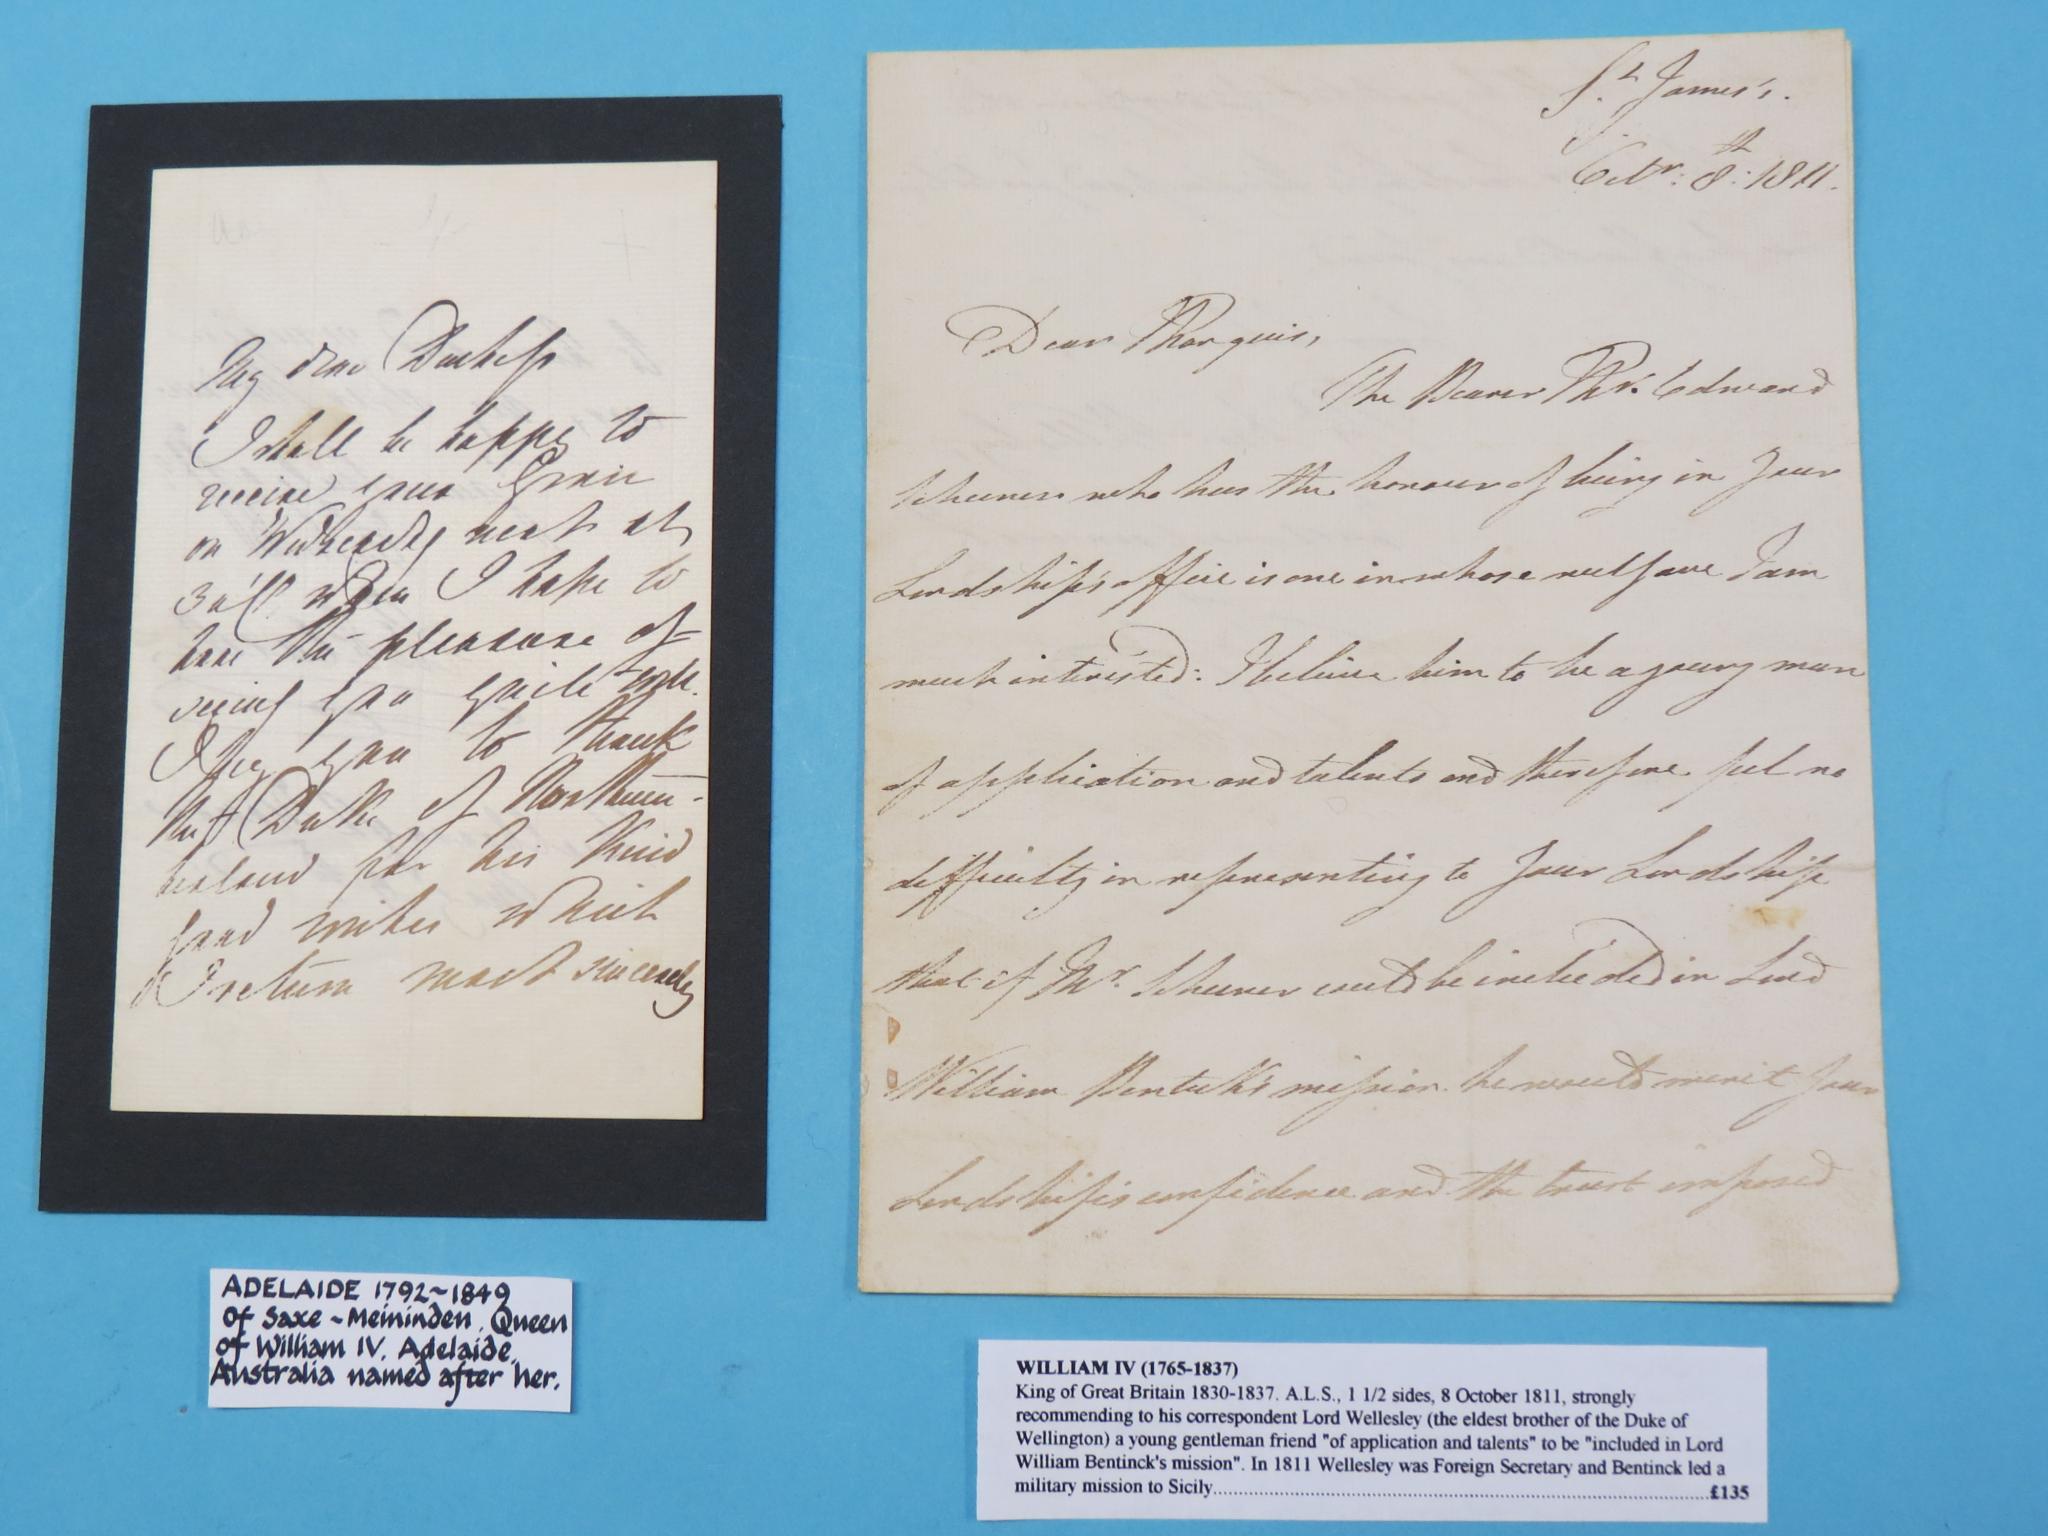 My dear Duchess
I shall be happy to
receive your Grace
on Wednesday next at
3 o'cl. when I hope to
have the pleasure of
seeing you quite well.
I beg you to thank
the Duke of Northum-
berland for his kind
good wishes which
I return most sincerely
ADELAIDE 1792~1849
of Saxe~Meininden. Queen
of William IV. Adelaide,
Australia named after her.
St James's.
Octr: 8th: 1811.
Dear Marquis,
The Bearer Mr. Edward
who has the honour of being in Your
Lordship's office is one in whose welfare I am
much interested: I believe him to be a young man
of application and talents and therefore feel no
difficulty in representing to Your Lordship
that if Mr. could be included in Lord
William Bentick's mission he would merit Your
Lordship's confidence and the trust imposed
WILLIAM IV (1765-1837)
King of Great Britain 1830-1837. A.L.S., 1 1/2 sides, 8 October 1811, strongly
recommending to his correspondent Lord Wellesley (the eldest brother of the Duke of
Wellington) a young gentleman friend "of application and talents" to be "included in Lord
William Bentinck's mission". In 1811 Wellesley was Foreign Secretary and Bentinck led a
military mission to Sicily....................................................................................................£135